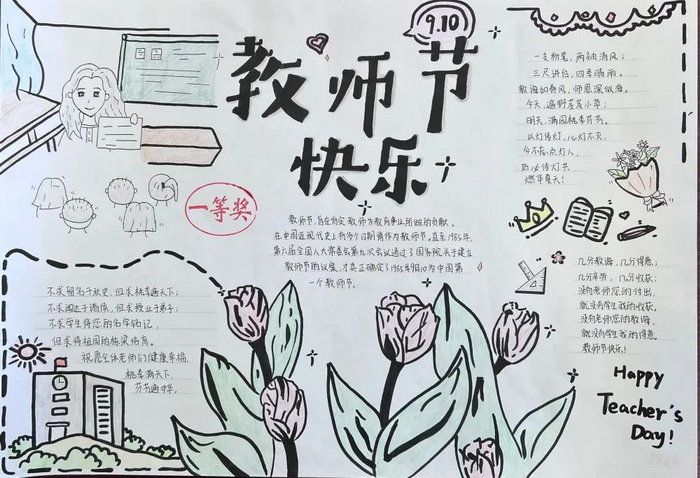 9.10
教师节
快乐
一等奖
一支粉笔，两袖清风；
三尺讲台，四季晴雨。
教诲如春风，师恩深似海。
今天，遍野芳芳小草；
明天，满园桃李芬芳。
以灯传灯，心灯不灭，
今不忘点灯人，
后必传灯共
燃华夏天！
教师节，旨在肯定教师为教育事业所做的贡献。
在中国近现代史上有多个日期曾作为教师节，直至1985年，
第六届全国人大常委会第九次会议通过了国务院关于建立
教师节的议案，才真正确定了1985年9月10为中国第
一个教师节。
不求留名于秋史，但求桃李遍天下；
不求闻达于诸侯，但求授业于弟子；
不求学生将您的名字铭记，
但求将祖国的栋梁培育。
祝愿全体老师们健康幸福，
桃李满天下，
芬芳遍中华。
几分教诲，几分得意；
几分辛劳，几分收获；
没有老师您的付出，
就没有学生我的收获。
没有老师您的教诲，
就没有学生我的得意。
教师节快乐！
Happy
Teacher's
Day!